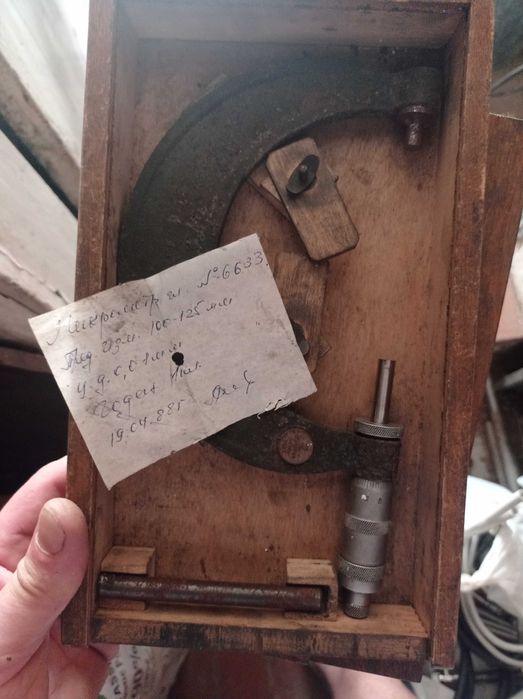 Микрометр гл. № 6633
Пред. изм. 100-125 мм
ц.д. 0,01 мм
Годен
19.04.88г.